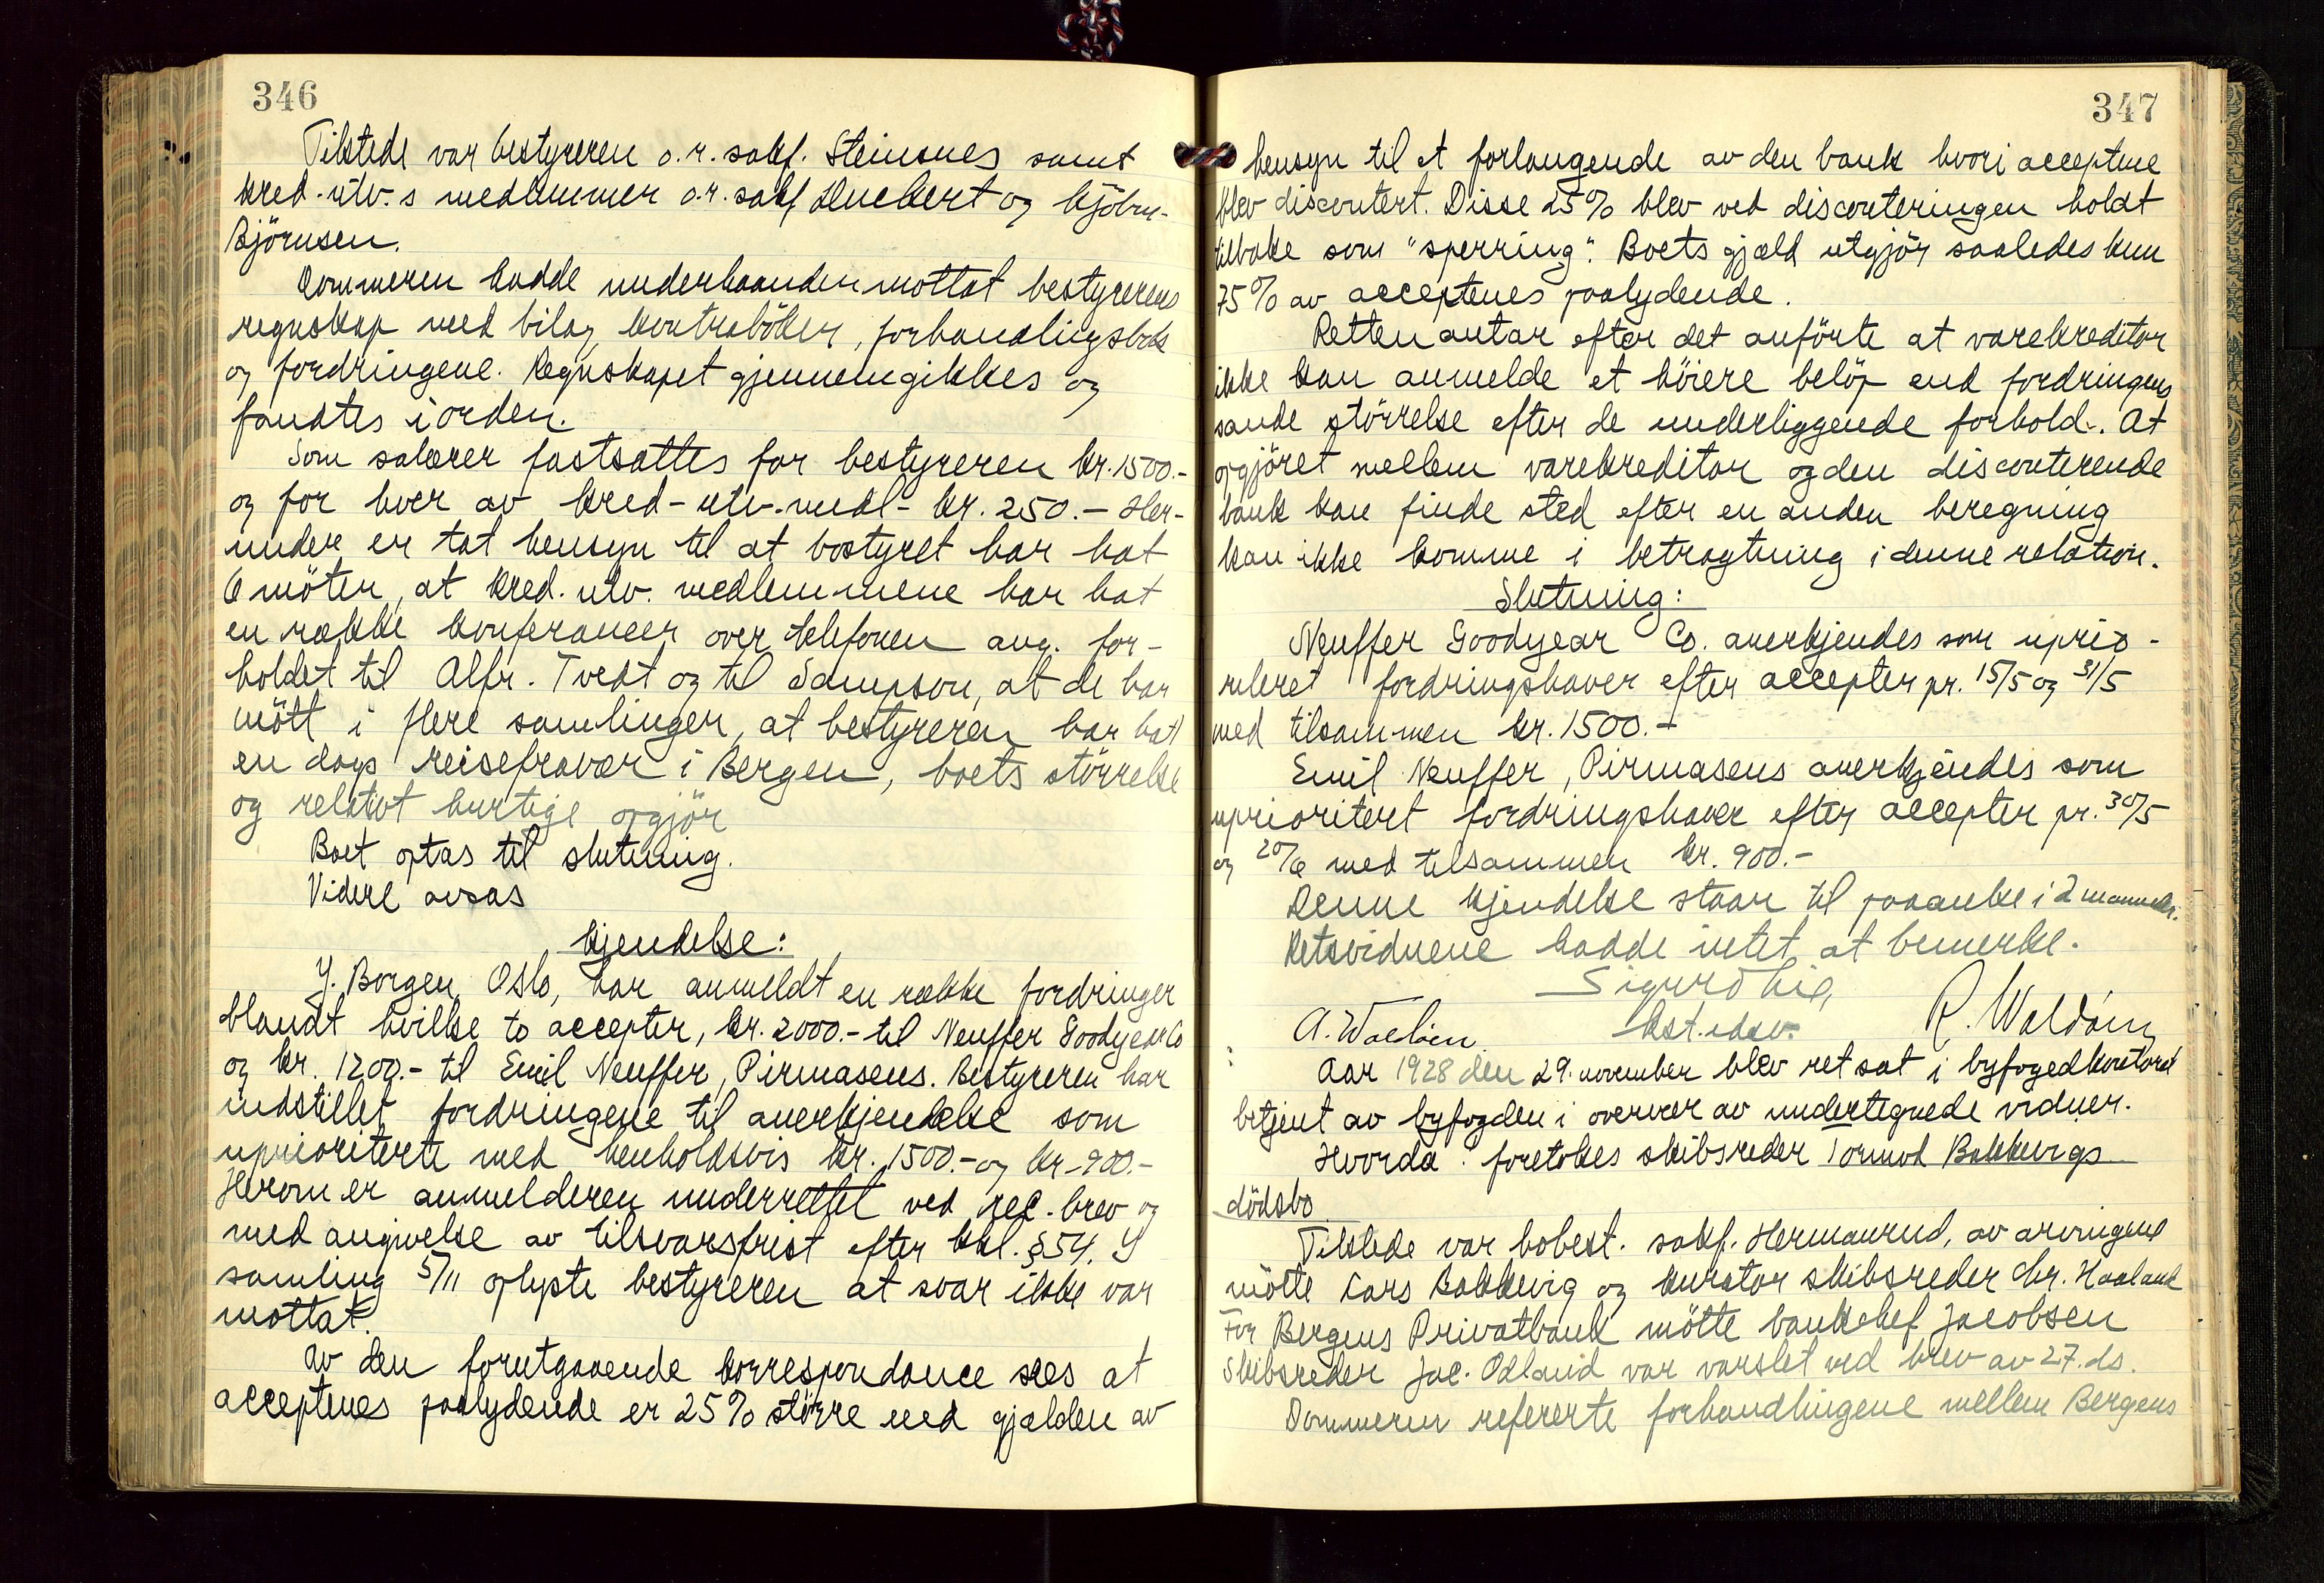 346
Tilstede var bestyreren o.r.sakf. Steinsnes samt
kred-utv.s medlemmer o.r.sakf Huckert og kjöbm.
Björnsen.
Dommeren hadde underhaanden mottat bestyrerens
regnskap med bilag, kontraböker, forhandlingsbok
og fordringene. Regnskapet gjennemgikkes og
fandtes i orden.
Som salærer fastsattes for bestyreren kr. 1500.-
og for hver av kred-utv.medl- kr. 250.- Her-
under er tat hensyn til at bostyret har hat
6 möter, at kred. utv. medlemmene har hat
en række konferancer over telefonen ang. for-
holdet til Alfr. Tvedt og til Sampson, at de har
mött i flere samlinger, at bestyreren har hat
en dags reisefravær i Bergen, boets störrelse
og relativt hurtige opgjör
Boet optas til slutning.
Videre avsas
kjendelse:
J. Borgen, Oslo, har anmeldt en række fordringer
blandt hvilke to accepter, kr. 2000.- til Neuffer Goodyear Co
og kr. 1200.- til Emil Neuffer, Pirmasens. Bestyreren har
indstillet fordringene til anerkjendelse som
uprioriterte med henholdsvis kr. 1500.- og kr. 900.-
Herom er anmelderen underrettet ved rec. brev og
med angivelse av tilsvarsfrist efter kkl. § 54. I
samling 5/11 oplyste bestyreren at svar ikke var
mottat.
Av den forutgaaende korrespondance sees at
acceptenes paalydende er 25% större end gjælden av
347
hensyn til et forlangende av den bank hvori acceptene
blev discontert. Disse 25% blev ved disconteringen holdt
tilbake som "sperring". Boets gjæld utgjör saaledes kun
75% av acceptenes paalydende.
Retten antar efter det anförte at varekreditor
ikke kan anmelde et höiere belöp end fordringens
sande störrelse efter de underliggende forhold. At
opgjöret mellem varekreditor og den disconterende
bank kan finde sted efter en anden beregning
kan ikke komme i betragtning i denne relation.
Slutning:
Neuffer Goodyear Co. anerkjendes som uprio-
riteret fordringshaver efter accepter pr. 15/5 og 31/5
med tilsammen kr. 1500.-
Emil Neuffer, Pirmasens anerkjendes som
uprioritert fordringshaver efter accepter pr. 30/5
og 20/6 med tilsammen kr. 900.-
Denne kjendelse staar til paaanke i 2 maaneder.
Retsvidnene hadde intet at bemerke.
Sigurd
A. Waldöm. kst. R. Waldöm
Aar 1928 den 29. november blev ret sat i byfogedkontoret
betjent av byfogden i overvær av undertegnede vidner.
Hvorda: foretokes skibsreder Tormod Bakkevigs
dödsbo
Tilstede var bobest. sakf. Hermanrud, av arvingene
mötte Lars Bakkevig og kurator skibsreder Chr. Haaland
For Bergens Privatbank mötte bankchef Jacobsen
Skibsreder Jac. Odland var varslet ved brev av 27. ds.
Dommeren refererte forhandlingene mellem Bergens